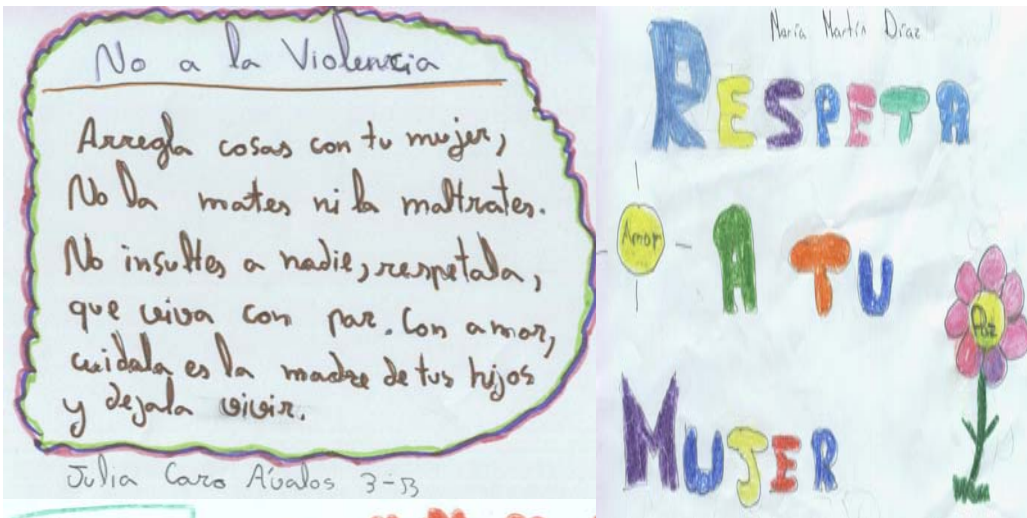 No a la Violencia
Arregla cosas con tu mujer,
No la mates ni la maltrates.
No insultes a nadie, respetala,
que viva con paz. Con amor,
cuidala es la madre de tus hijos
y dejala vivir.
Julia Caro Ávalos 3-B
María Martín Díaz
RESPETA
Amor
A TU
Paz
MUJER